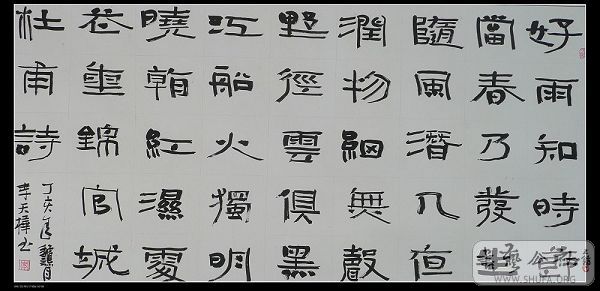 好雨知時節
當春乃發生
隨風潛入夜
潤物細無聲
野徑雲俱黑
江船火獨明
曉看紅濕處
花重錦官城
杜甫詩
丁亥年月
李天樟书
WWW.SHUFA.ORG